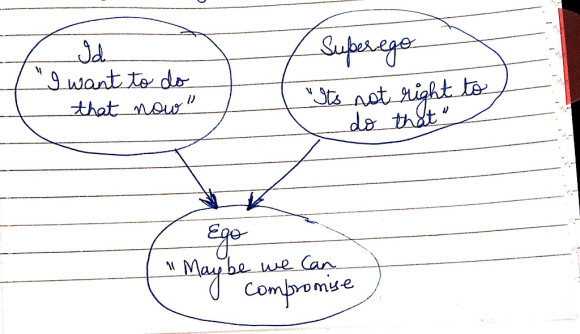 Id
"I want to do
that now"
Superego
"Its not right to
do that"
Ego
"Maybe we can
compromise